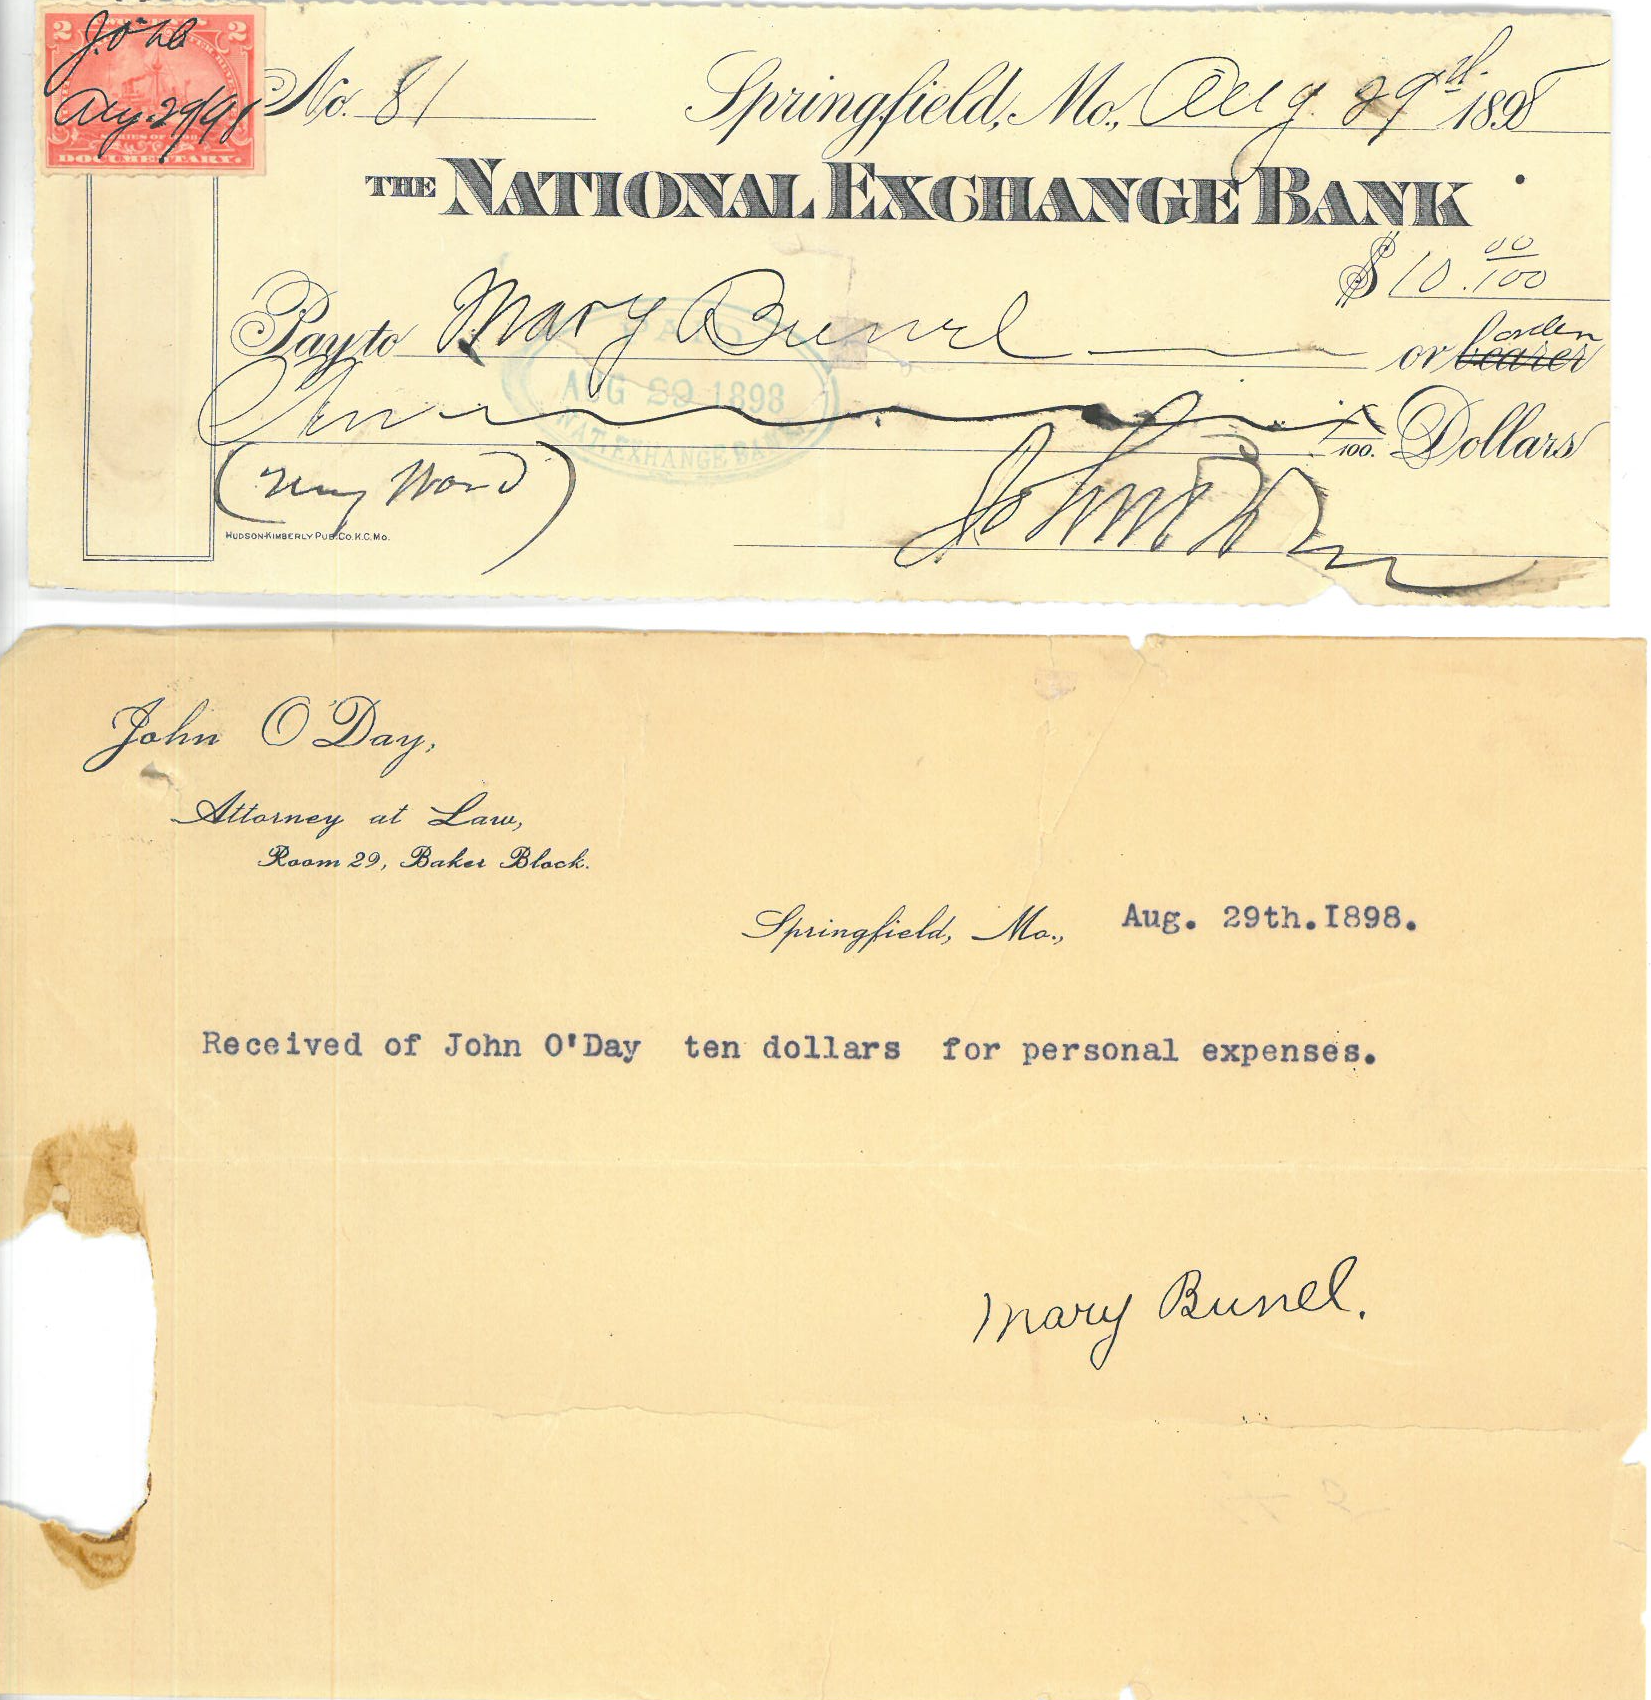 2 2
J.O'D
Aug. 29/98
DOCUMENTARY.
No. 81 Springfield, Mo., Aug. 29th 1898
THE NATIONAL EXCHANGE BANK
$10.00/100
Pay to Mary Bunel or bearer order
PAID
AUG 29 1898
NAT. EXCHANGE BANK
Ten x/100. Dollars
HUDSON-KIMBERLY PUB. CO. K.C. MO.
John O'Day,
Attorney at Law,
Room 29, Baker Block.
Springfield, Mo., Aug. 29th.I898.
Received of John O'Day ten dollars for personal expenses.
Mary Bunel.